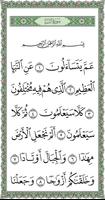 بِسْمِ اللَّهِ الرَّحْمَٰنِ الرَّحِيمِ
عَمَّ يَتَسَاءَلُونَ ١ عَنِ النَّبَإِ
الْعَظِيمِ ٢ الَّذِي هُمْ فِيهِ مُخْتَلِفُونَ ٣
كَلَّا سَيَعْلَمُونَ ٤ ثُمَّ كَلَّا
سَيَعْلَمُونَ ٥ أَلَمْ نَجْعَلِ الْأَرْضَ
مِهَادًا ٦ وَالْجِبَالَ أَوْتَادًا ٧
وَخَلَقْنَاكُمْ أَزْوَاجًا ٨